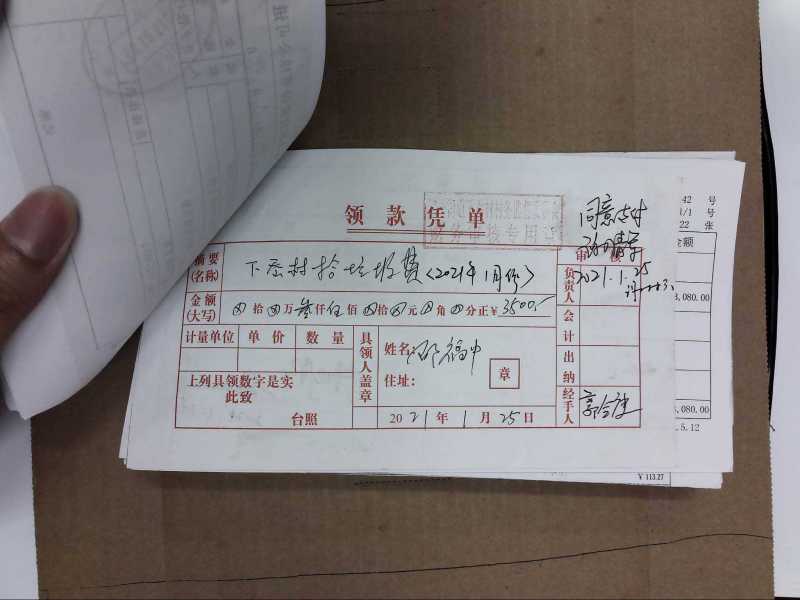 领款凭单
同意
2021.1.25
摘要
(名称)
村拾垃圾费(2021年1月份)
审核
负责人
金额
(大写)
⊗拾⊗万叁仟伍佰⊗拾⊗元⊗角⊗分正¥3500.-
计量单位 单价 数量
具领人盖章
姓名:
福中
住址:
章
会计
出纳
上列具领数字是实
此致
台照
2021年1月25日
经手人
42 号
1/1 号
22 张
金额
3,080.00
3,080.00
.5.12
¥113.27